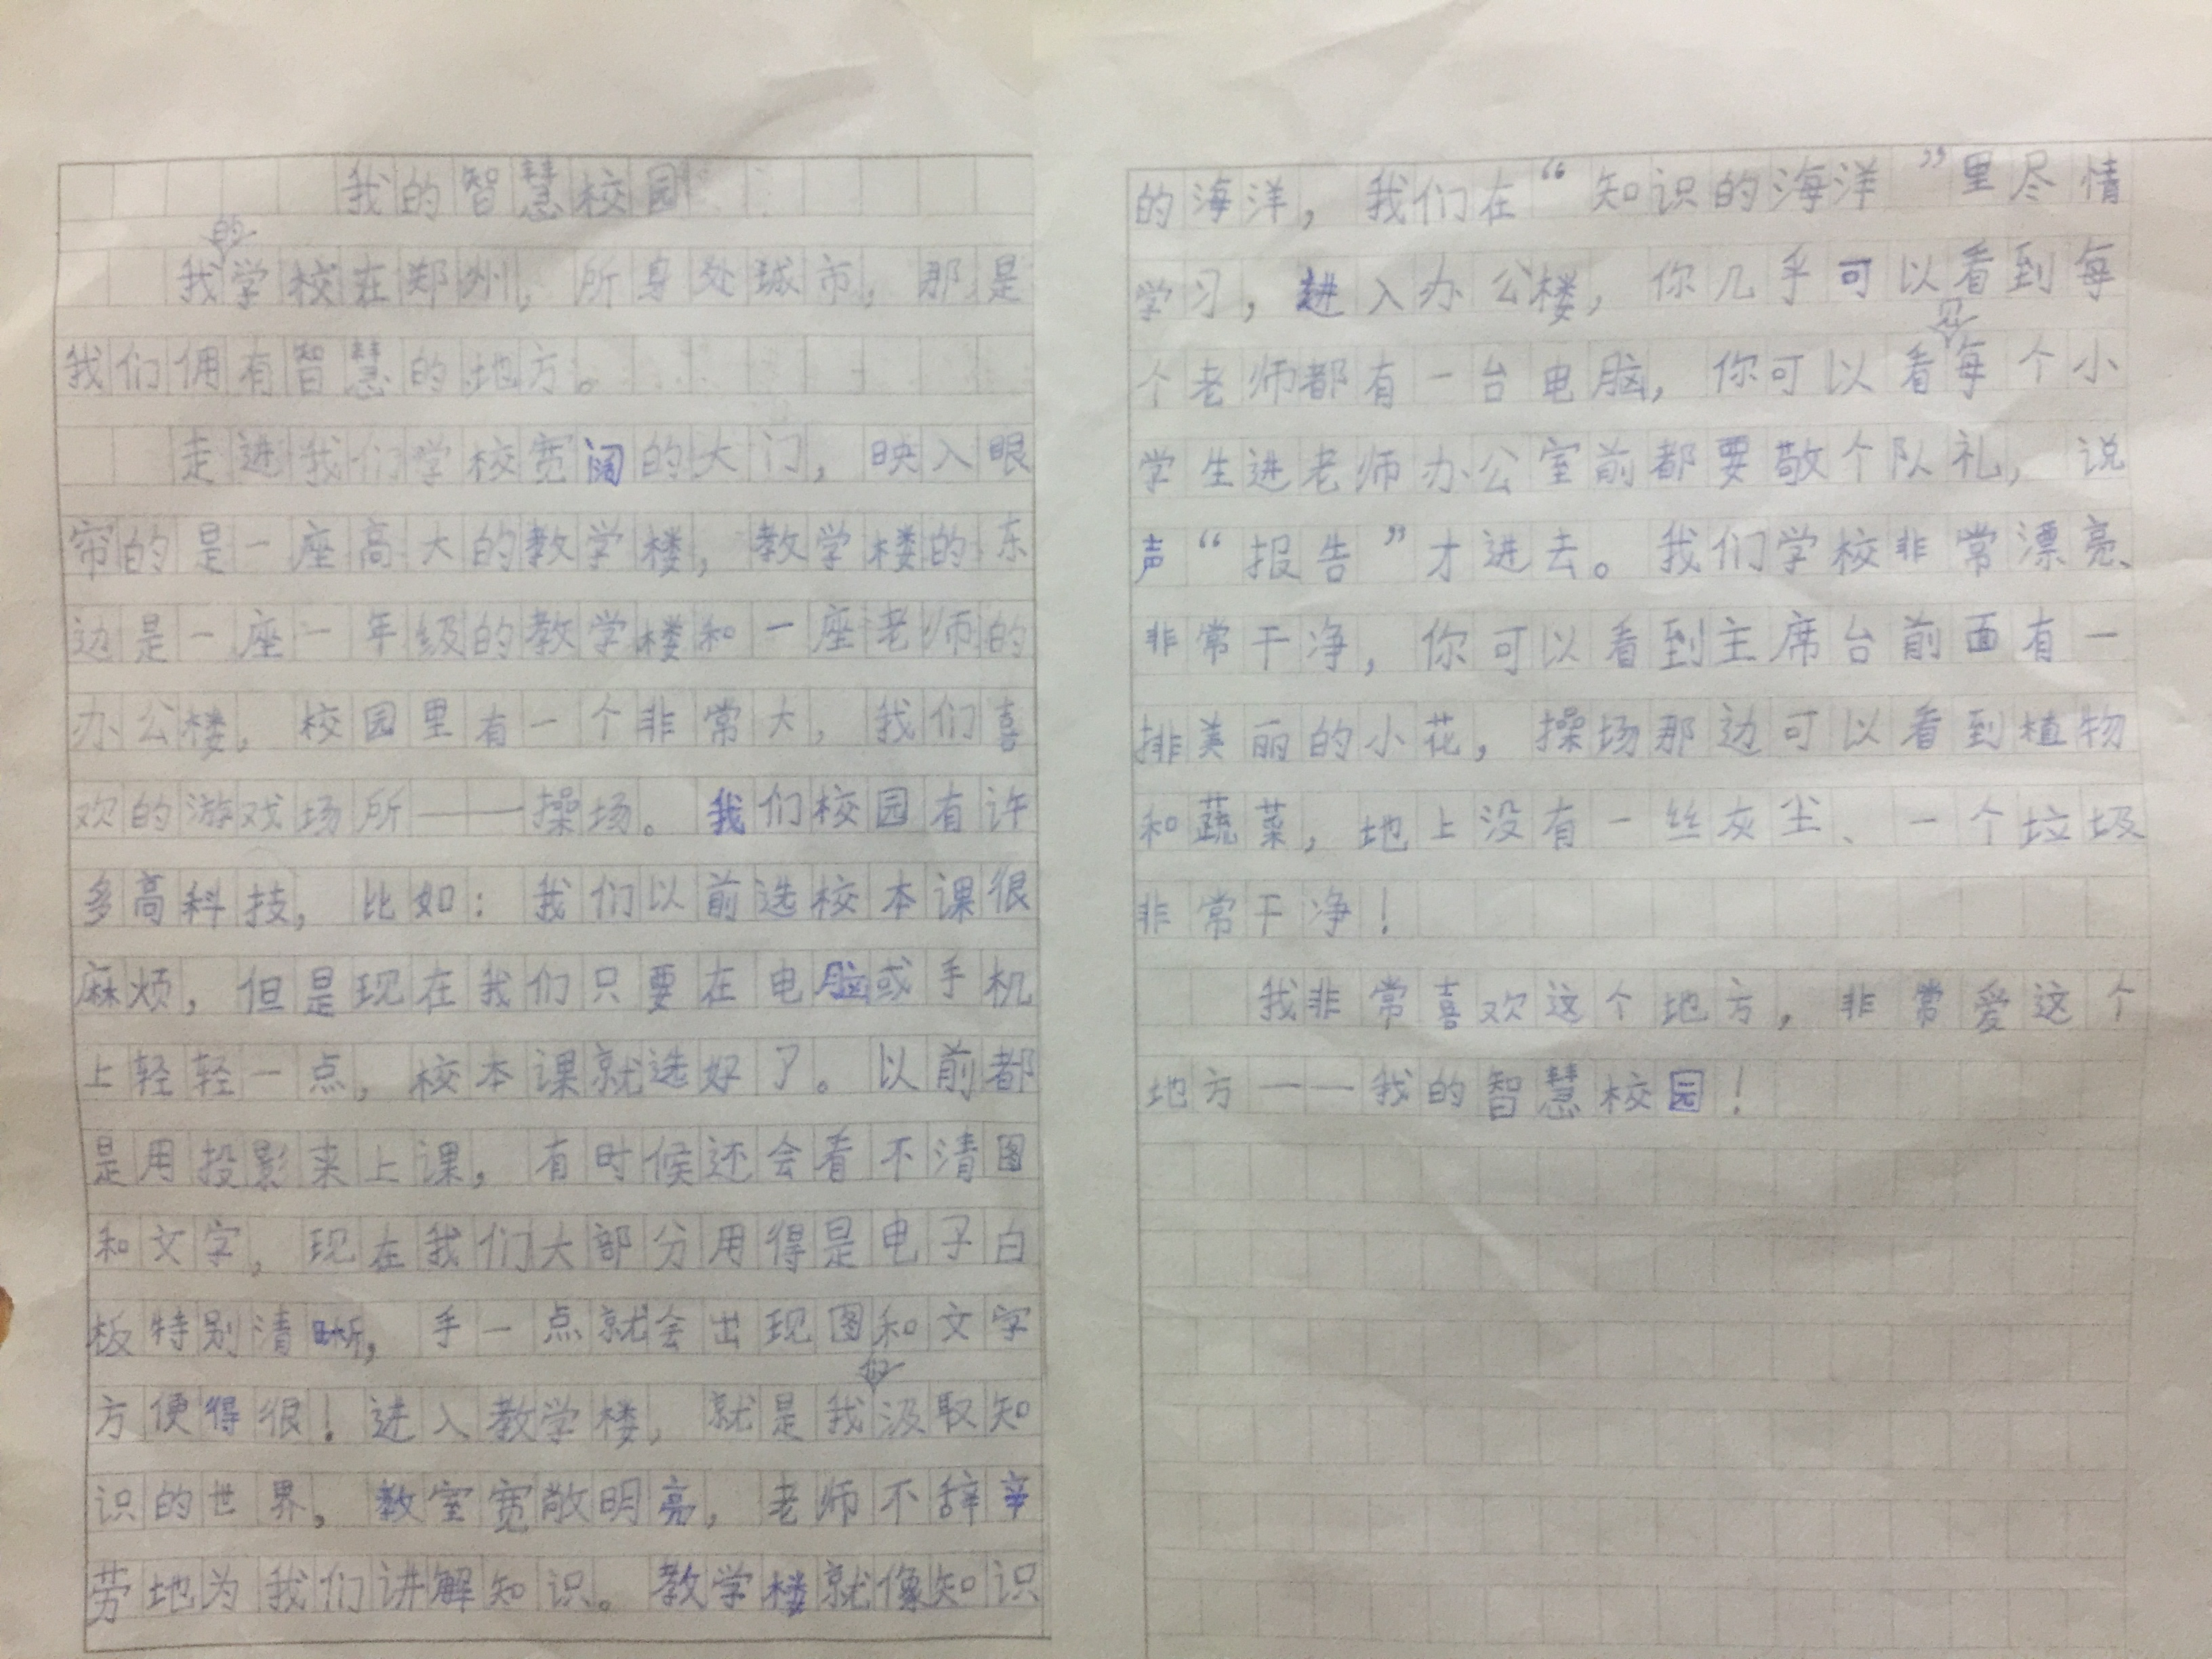 我的智慧校园
我的学校在郑州，所身处城市，那是
我们佣有智慧的地方。
走进我们学校宽阔的大门，映入眼
帘的是一座高大的教学楼，教学楼的东
边是一座一年级的教学楼和一座老师的
办公楼，校园里有一个非常大，我们喜
欢的游戏场所——操场。我们校园有许
多高科技，比如：我们以前选校本课很
麻烦，但是现在我们只要在电脑或手机
上轻轻一点，校本课就选好了。以前都
是用投影来上课，有时候还会看不清图
和文字，现在我们大部分用得是电子白
板特别清晰，手一点就会出现图和文字
方便得很！进入教学楼，就是我们汲取知
识的世界，教室宽敞明亮，老师不辞辛
劳地为我们讲解知识。教学楼就像知识
的海洋，我们在“知识的海洋”里尽情
学习，进入办公楼，你几乎可以看到每
个老师都有一台电脑，你可以看见每个小
学生进老师办公室前都要敬个队礼，说
声“报告”才进去。我们学校非常漂亮、
非常干净，你可以看到主席台前面有一
排美丽的小花，操场那边可以看到植物
和蔬菜，地上没有一丝灰尘、一个垃圾
非常干净！
我非常喜欢这个地方，非常爱这个
地方——我的智慧校园！